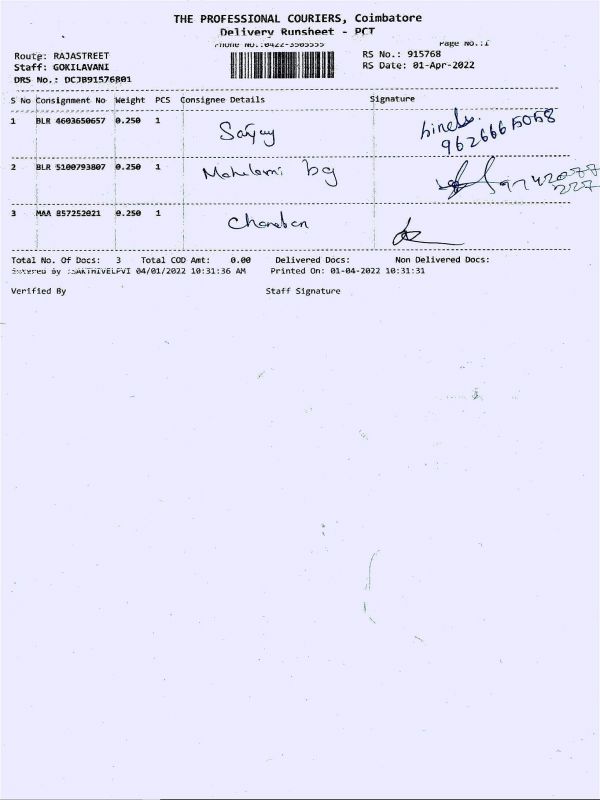 THE PROFESSIONAL COURIERS, Coimbatore
Delivery Runsheet - PCT
Phone No.:0422-3505555 Page No.:1
Route: RAJASTREET RS No.: 915768
Staff: GOKILAVANI RS Date: 01-Apr-2022
DRS No.: DCJB91576801
S No Consignment No Weight PCS Consignee Details Signature
1 BLR 4603650657 0.250 1 Sanjay
9626665058
2 BLR 5100793807 0.250 1 bg
3 MAA 857252021 0.250 1
Total No. Of Docs: 3 Total COD Amt: 0.00 Delivered Docs: Non Delivered Docs:
Entered By :SAKTHIVELPVI 04/01/2022 10:31:36 AM Printed On: 01-04-2022 10:31:31
Verified By Staff Signature